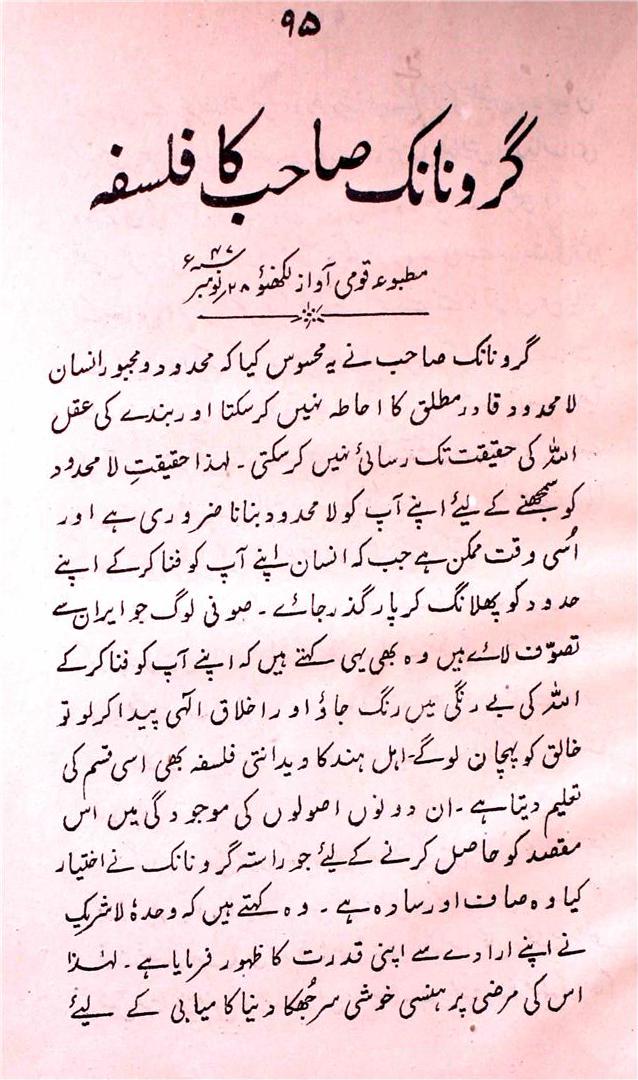 ۹۵
گرو نانک صاحب کا فلسفہ
مطبوعہ قومی آواز لکھنؤ ۲۸ نومبر ۴۷ء
گرو نانک صاحب نے یہ محسوس کیا کہ محدود و مجبور انسان
لا محدود قادر مطلق کا احاطہ نہیں کر سکتا اور بندے کی عقل
اللہ کی حقیقت تک رسائی نہیں کر سکتی ۔ لہذا حقیقتِ لا محدود
کو سمجھنے کے لیئے اپنے آپ کو لا محدود بنانا ضروری ہے اور
اُسی وقت ممکن ہے جب کہ انسان اپنے آپ کو فنا کر کے اپنے
حدود کو پھلانگ کر پار گذر جائے ۔ صوفی لوگ جو ایران سے
تصوّف لائے ہیں وہ بھی یہی کہتے ہیں کہ اپنے آپ کو فنا کر کے
اللہ کی بے رنگی میں رنگ جاؤ اور اخلاق الٰہی پیدا کر لو تو
خالق کو پہچان لو گے۔ اہل ہند کا ویدانتی فلسفہ بھی اسی قسم کی
تعلیم دیتا ہے ۔ ان دونوں اصولوں کی موجودگی میں اس
مقصد کو حاصل کرنے کے لیئے جو راستہ گرو نانک نے اختیار
کیا وہ صاف اور سادہ ہے ۔ وہ کہتے ہیں کہ وحدہٗ لا شریک
نے اپنے ارادے سے اپنی قدرت کا ظہور فرمایا ہے ۔ لہٰذا
اس کی مرضی پر ہنسی خوشی سر جُھکا دنیا کامیابی کے لیئے